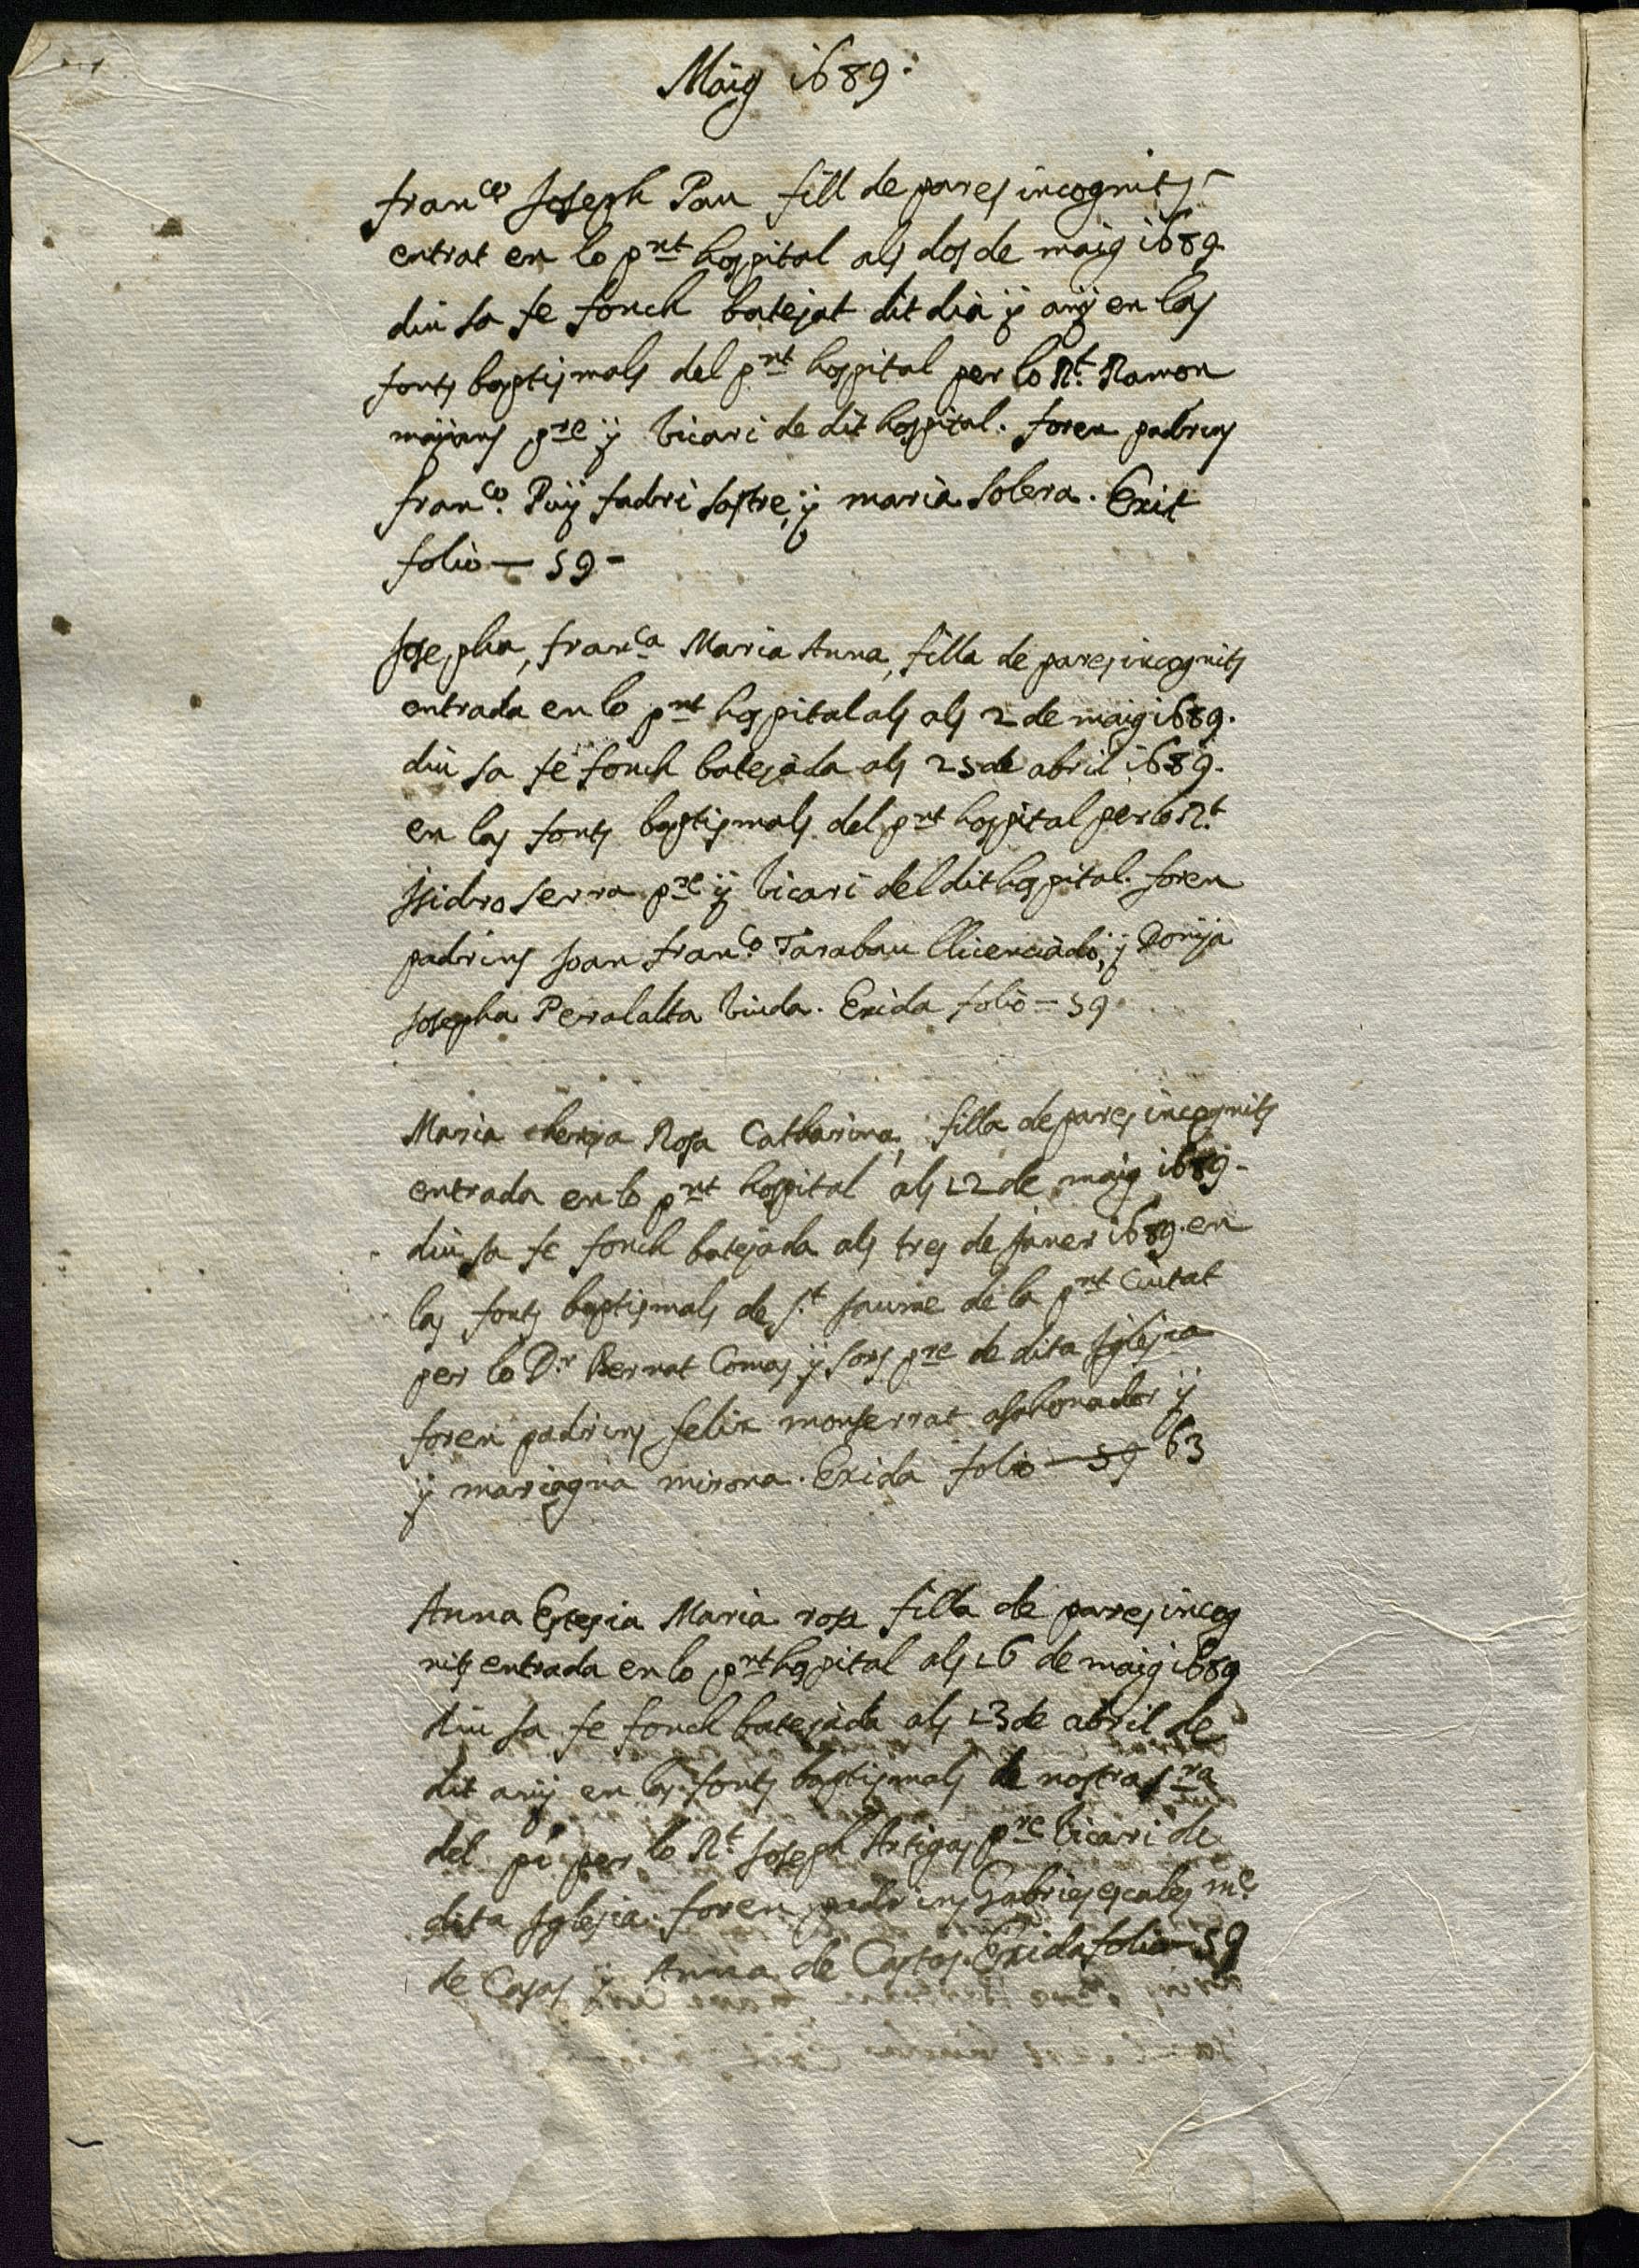 Maig 1689.
fran.co Joseph Pau fill de pares incognits
entrat en lo pnt hospital als dos de maig 1689
diu sa fe fonch batejat dit dia y any en las
fonts baptismals del pnt hospital per lo Rt. Ramon
majans pre y vicari de dit hospital. foren padrins
fran.co Puij fadri sastre, y maria solera. Exit
folio — 59 -
Josepha, fran.ca Maria Anna, filla de pares incognits
entrada en lo pnt hospital als als 2 de maig 1689.
diu sa fe fonch batejada als 25 de abril 1689.
en las fonts baptismals del pnt hospital per lo Rt
Isidro serra pre y vicari del dit hospital. foren
padrins Joan fran.co Tarabau llicenciado, y Donya
Josepha Peralalta viuda. Exida folio — 59
Maria theresa Rosa Catharina, filla de pares incognits
entrada en lo pnt hospital als 12 de maig 1689.
diu sa fe fonch batejada als tres de Janer 1689. en
las fonts baptismals de St. Jaume de la pnt Ciutat
per lo Dr. Bernat Comas y sors pre de dita Iglesia
foren padrins felix monserrat asahonador y
y mariagna mirona. Exida folio — 59 63
Anna Estesia Maria rosa filla de pares incog
nits entrada en lo pnt hospital als 16 de maig 1689
diu sa fe fonch batejada als 13 de abril de
dit any en las fonts baptismals de nostra sra
del pi per lo Rt. Joseph Artigas pre vicari de
dita Iglesia. foren padrins Gabriel escales me
de Casas y Anna de Castos. Exida folio — 59